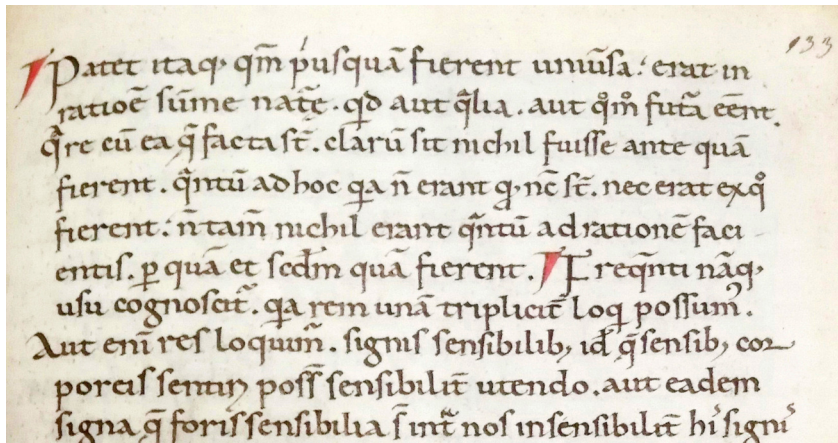 133
Patet itaq; qm̅ p̍usquā fierent uniu͛sa. erat in
ratioe̅ sum̅e nat᷑ę. qd̅ aut q̅lia. aut qo̊mo̊ fut᷑a ee̅nt.
q̅re cū ea q̅ facta st̅. clarū sit nichil fuisse ante quā
fierent. q̅ntū ad hoc qa n̅ erant q nc̅ st̅. nec erat ex qo̊
fierent. n̅ tam̅ nichil erant q̅ntū ad ratione̅ faci
entis. ꝑ quā et scd̅m quā fierent. Freq̅nti nāq;
usu cognoscit᷑. qa rem unā triplicit̅ loqi possum᷒.
Aut eni̅ res loquim᷑. signis sensibilib; id̅ q̅ sensib; cor
poreis sentiri poss̅ sensibilit̅ utendo. aut eadem
signa q̅ foris sensibilia s̅ int᷑ nos insensibilit̅ hi᷒ signi᷒